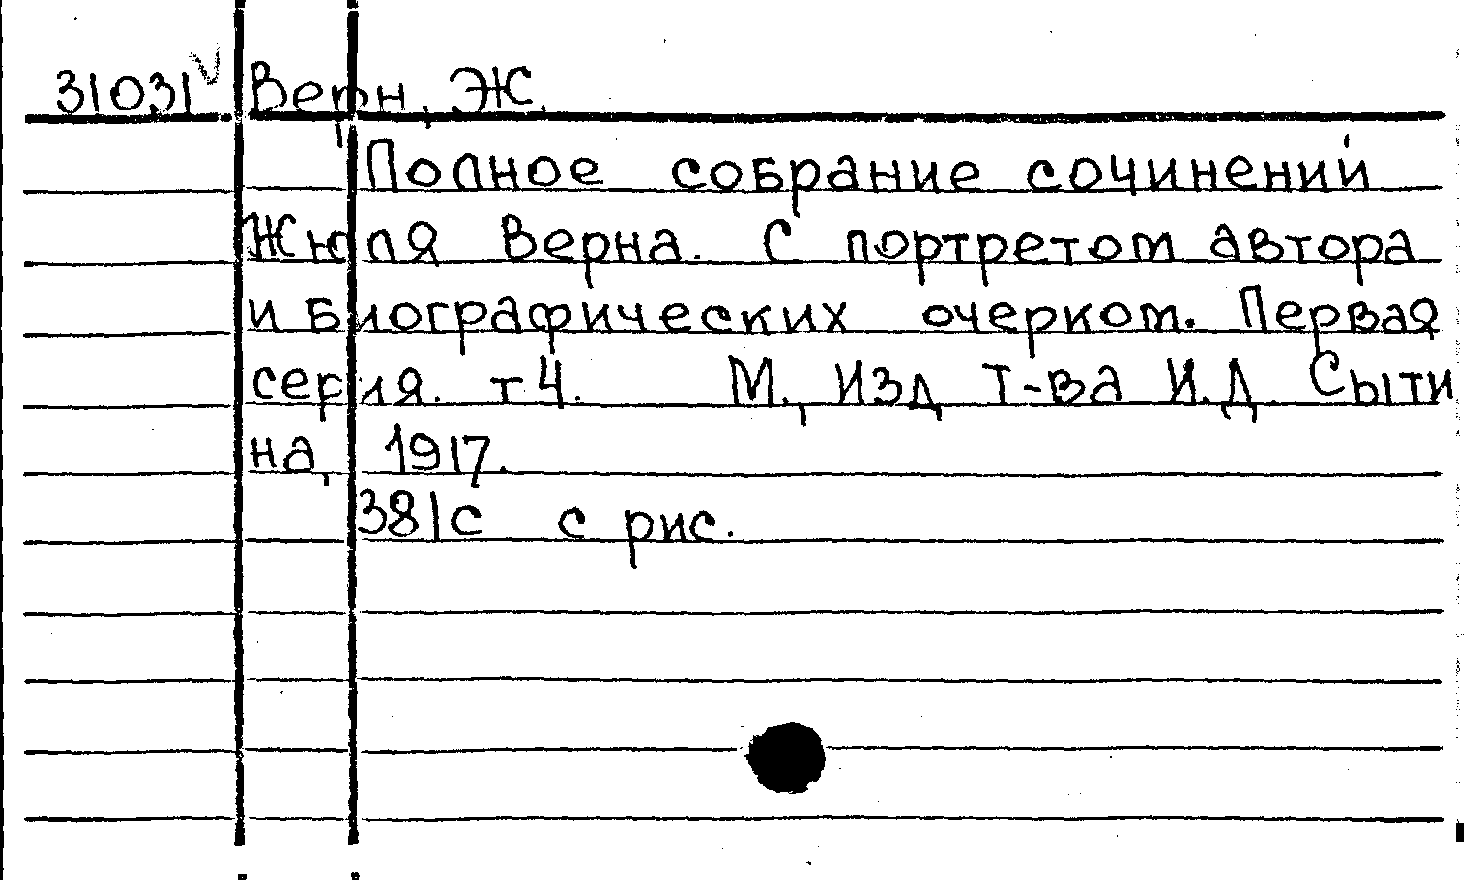 31031 Верн, Ж.
Полное собрание сочинений
Жюля Верна. С портретом автора
и биографических очерком. Первая
серия. т 4. М., Изд Т-ва И.Д. Сыти
на, 1917.
381с с рис.